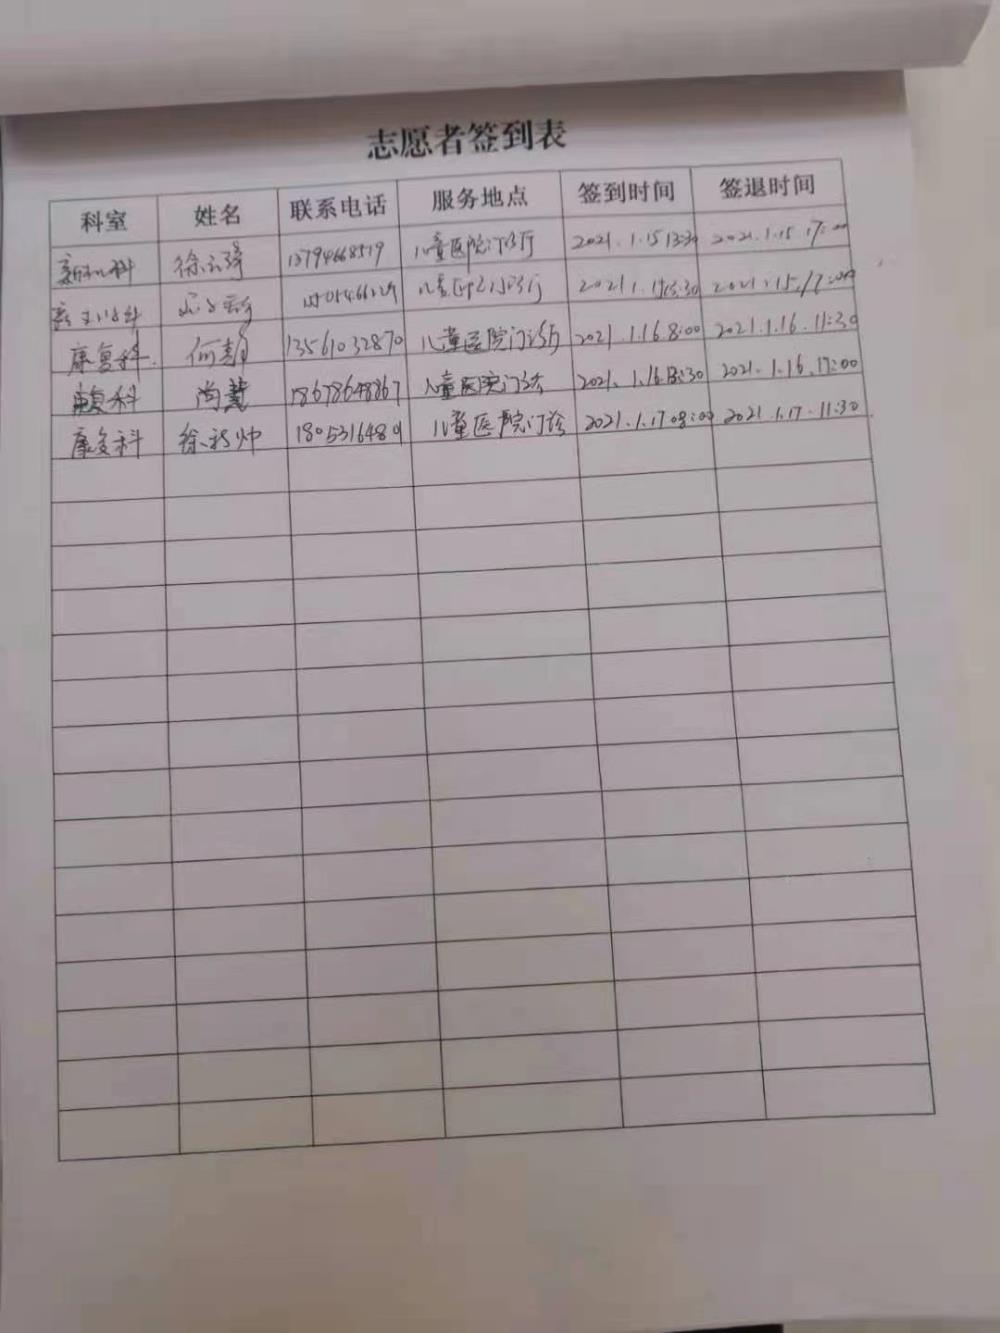 志愿者签到表
科室 姓名 联系电话 服务地点 签到时间 签退时间
科 徐 13794668519 儿童医院门诊厅 2021.1.15 13:30 2021.1.15 17:00
儿童 2021.1.15 13:30 2021.1.15 17:00
康复科 何 13561032870 儿童医院门诊厅 2021.1.16 8:00 2021.1.16 11:30
康复科 尚慧 18678648867 儿童医院门诊 2021.1.16 13:30 2021.1.16 17:00
康复科 徐 1805316480 儿童医院门诊 2021.1.17 08:00 2021.1.17 11:30